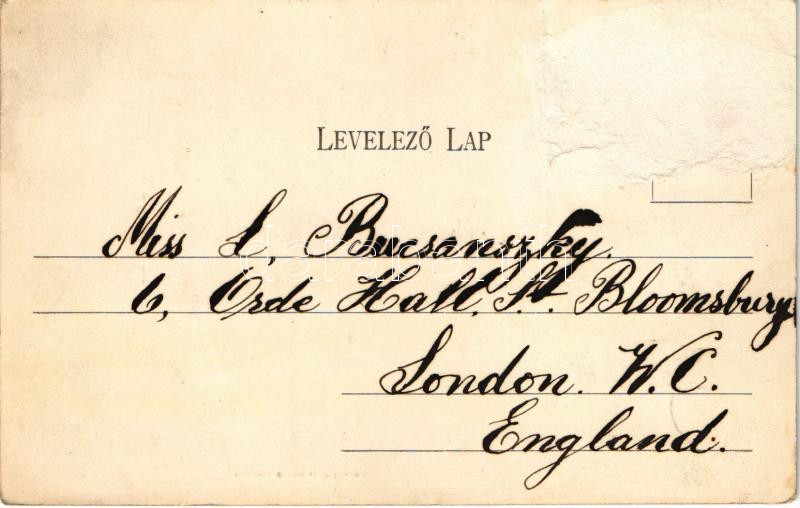 LEVELEZŐ LAP
Miss L, Bucsanszky.
6, Orde Hall, St. Bloomsbury
London. W. C.
England.